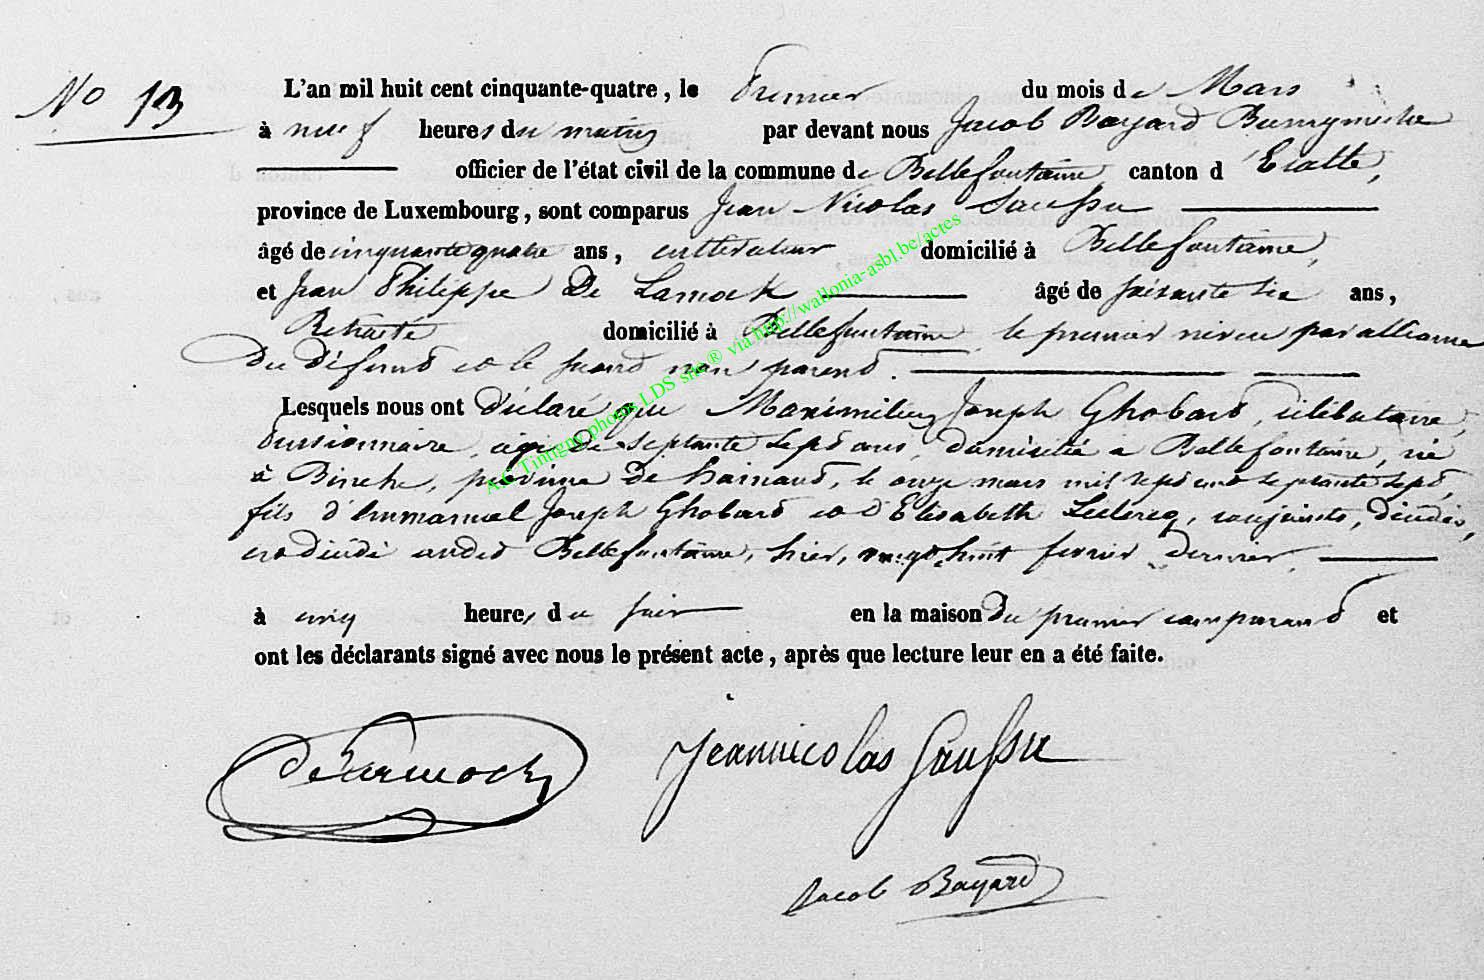 No 13
L'an mil huit cent cinquante-quatre, le Premier du mois de Mars
à neuf heures du matin par devant nous Jacob Bayard Burgmestre
officier de l'état civil de la commune de Bellefontaine canton d'Etalle,
province de Luxembourg, sont comparus Jean Nicolas Saussu
âgé de cinquante quatre ans, cultivateur domicilié à Bellefontaine,
et Jean Philippe De Lamock âgé de soixante six ans,
Retraité domicilié à Bellefontaine, le premier neveu par alliance
du défunt et le second non parent.
Lesquels nous ont déclaré que Maximilien Joseph Ghobard, célibataire,
pensionnaire, âgé de septante sept ans, domicilié à Bellefontaine, né
à Binche, province de hainaut, le onze mars mil sept cent septante sept,
fils d'Emmanuel Joseph Ghobard et d'Elisabeth Leclercq, conjoints, décédés,
est décédé audit Bellefontaine, hier, vingt huit fevrier dernier,
à cinq heures du soir en la maison du premier comparant et
ont les déclarants signé avec nous le présent acte, après que lecture leur en a été faite.
Jeannicolas Saussu
Jacob Bayard
AC Tintigny photos LDS site® via http://wallonia-asbl.be/actes